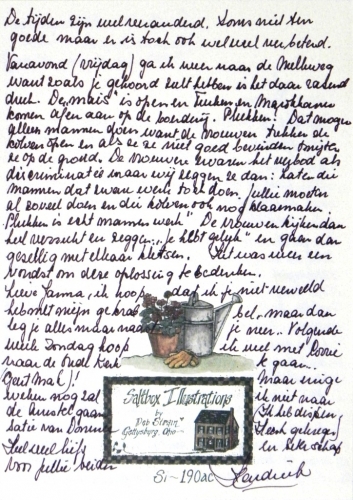 De tijden zijn wel veranderd. Soms niet ten
goede maar er is toch ook wel veel verbeterd.
Vanavond (vrijdag) ga ik weer naar de Melkweg
want zoals je gehoord zult hebben is het daar razend
druk. De "mais" is open en Turken en Marokkanen
komen af en aan op de boerderij. Plukken! Dat mogen
alleen mannen doen want de vrouwen trekken de
kolven open en als ze ze niet goed bevinden smijten
ze op de grond. De vrouwen ervaren het verbod als
discriminatie maar wij zeggen ze dan: laten die
mannen dat zware werk toch doen jullie moeten
al zoveel doen en die kolven ook nog klaarmaken
Plukken is echt mannenwerk" De vrouwen kijken dan
heel verrukt en zeggen "je hebt gelijk" en gaan dan
gezellig met elkaar kletsen. Het was weer een
vondst om deze oplossing te bedenken.
Lieve Janna, ik hoop dat ik je niet verveeld
heb met mijn gekrab bel, maar dan
leg je alles maar naast je neer. Volgende
week Zondag hoop ik wel met Dorrie
naar de Oude Kerk te gaan.
Maar enige
weken nog zal ik niet naar
de Amstel gaan
Heel veel liefs
voor jullie beiden
Hendrick
Saltbox Illustrations
by
Deb Strain
Gettysburg, Ohio
Si-190ac